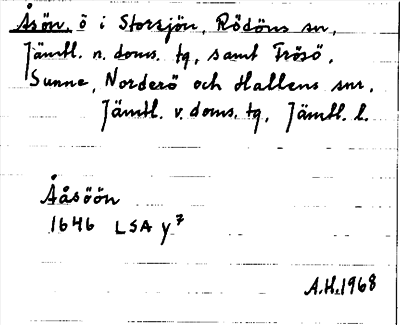 Åsön, ö i Storsjön, Rödöns sn,
Jämtl. n. doms. tg, samt Frösö,
Sunne, Norderö och Hallens snr,
Jämtl. v. doms. tg, Jämtl. l.
Ååsöön
1646 LSA y⁷
A.H. 1968